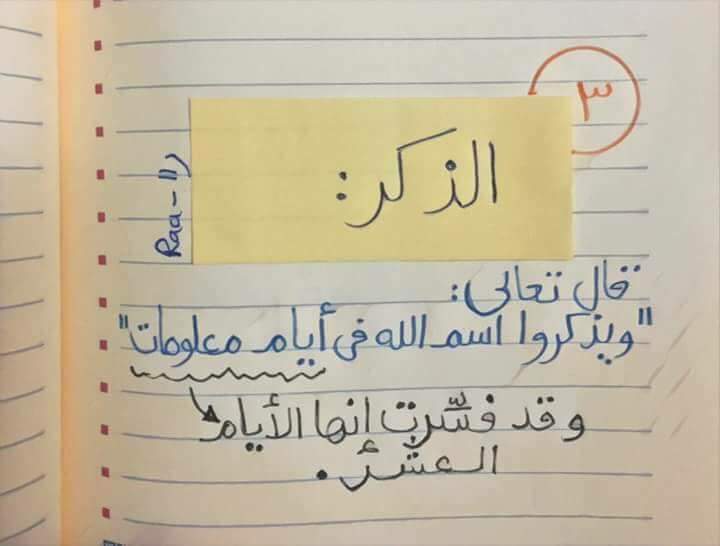 ٣
الذكر:
Raa-11
قال تعالى:
"ويذكروا اسم الله في أيام معلومات"
وقد فسّرت انها الأيام
العشر.